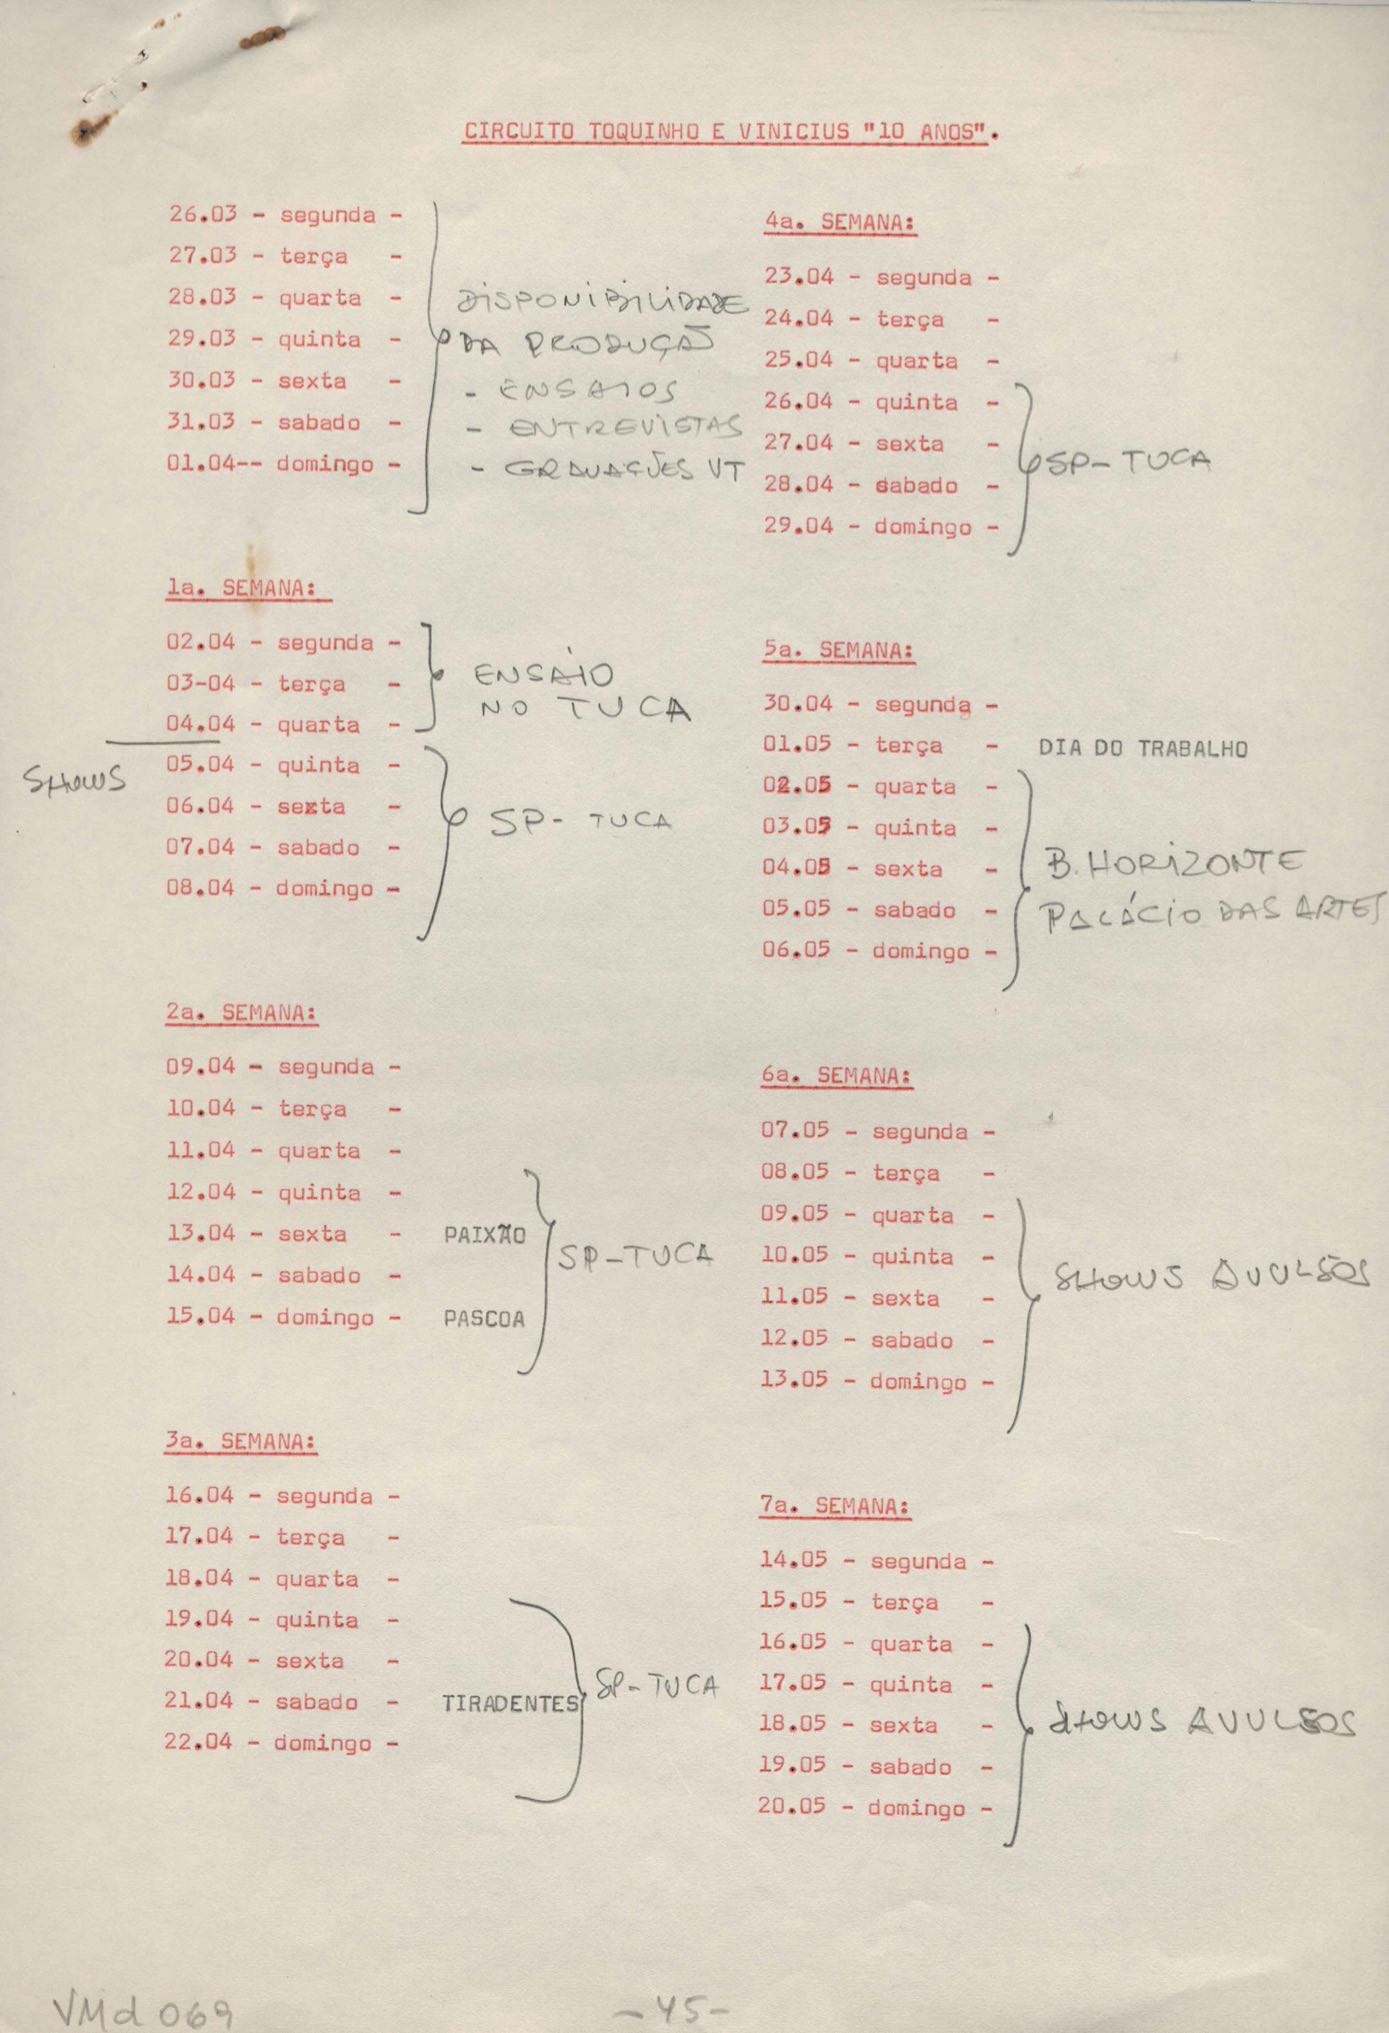 CIRCUITO TOQUINHO E VINICIUS "10 ANOS".
26.03 - segunda -
27.03 - terça -
28.03 - quarta -
29.03 - quinta -
30.03 - sexta -
31.03 - sabado -
01.04-- domingo -
DISPONIBILIDADE
DA PRODUÇÃO
- ENSAIOS
- ENTREVISTAS
- GRAVAÇÕES VT
1a. SEMANA:
02.04 - segunda -
03-04 - terça -
04.04 - quarta -
ENSAIO
NO TUCA
SHOWS
05.04 - quinta -
06.04 - sexta -
07.04 - sabado -
08.04 - domingo -
SP- TUCA
2a. SEMANA:
09.04 - segunda -
10.04 - terça -
11.04 - quarta -
12.04 - quinta -
13.04 - sexta - PAIXÃO
14.04 - sabado -
15.04 - domingo - PASCOA
SP-TUCA
3a. SEMANA:
16.04 - segunda -
17.04 - terça -
18.04 - quarta -
19.04 - quinta -
20.04 - sexta -
21.04 - sabado - TIRADENTES
22.04 - domingo -
SP-TUCA
4a. SEMANA:
23.04 - segunda -
24.04 - terça -
25.04 - quarta -
26.04 - quinta -
27.04 - sexta -
28.04 - sabado -
29.04 - domingo -
SP-TUCA
5a. SEMANA:
30.04 - segunda -
01.05 - terça - DIA DO TRABALHO
02.05 - quarta -
03.05 - quinta -
04.05 - sexta -
05.05 - sabado -
06.05 - domingo -
B. HORIZONTE
PALÁCIO DAS ARTES
6a. SEMANA:
07.05 - segunda -
08.05 - terça -
09.05 - quarta -
10.05 - quinta -
11.05 - sexta -
12.05 - sabado -
13.05 - domingo -
SHOWS AVULSOS
7a. SEMANA:
14.05 - segunda -
15.05 - terça -
16.05 - quarta -
17.05 - quinta -
18.05 - sexta -
19.05 - sabado -
20.05 - domingo -
SHOWS AVULSOS
VMd 069
-45-